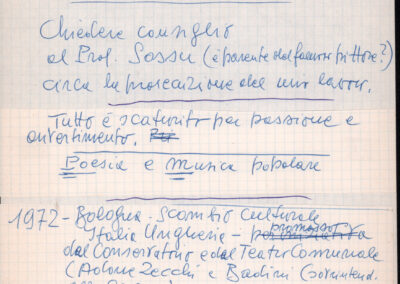 Chiedere consiglio
al Prof. Sassu (è parente del famoso pittore?)
circa la prosecuzione del mio lavoro.
Tutto è scaturito per passione e
divertimento. Per
Poesia e musica popolare
1972 - Bologna. Scambio culturale
Italia Ungheria - promosso
dal Conservatorio e dal Teatro Comunale
(Adone Zecchi e Badini